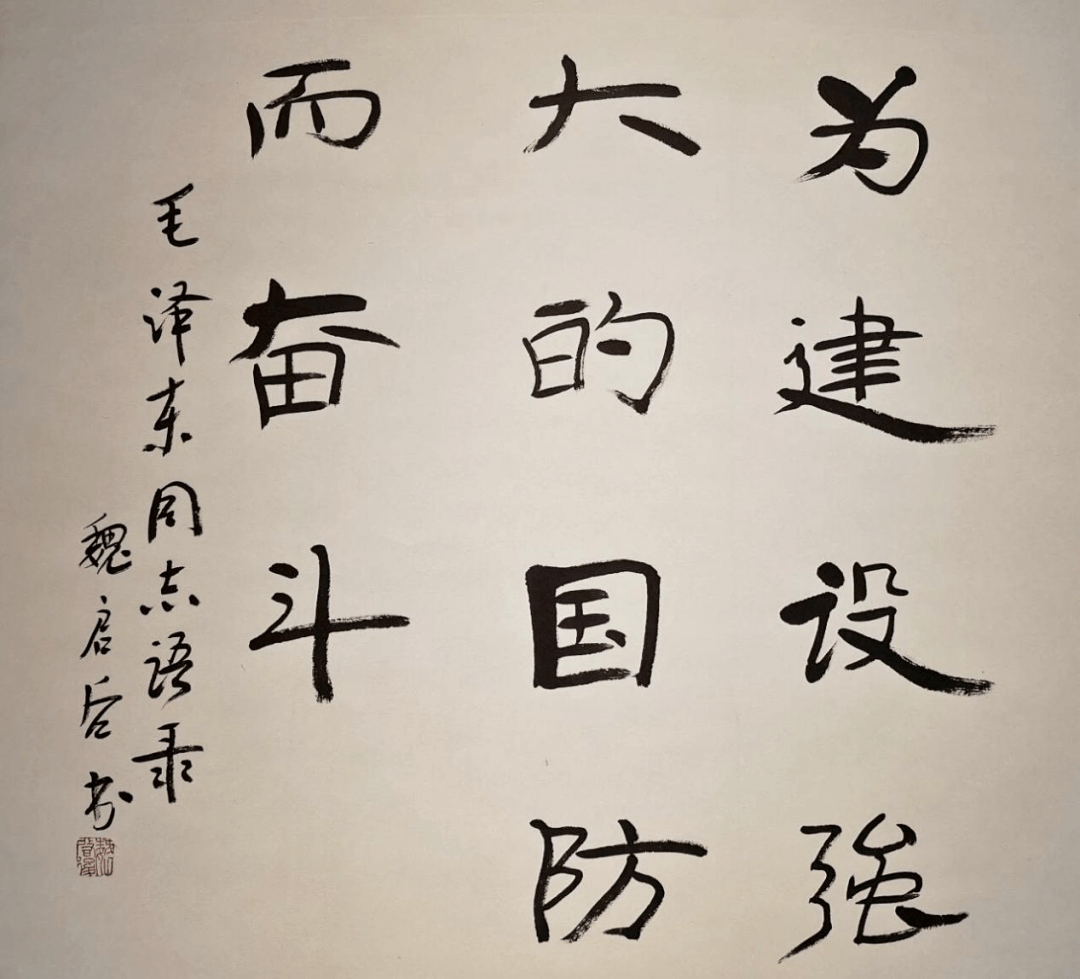 为建设强
大的国防
而奋斗
毛泽东同志语录
魏启后书